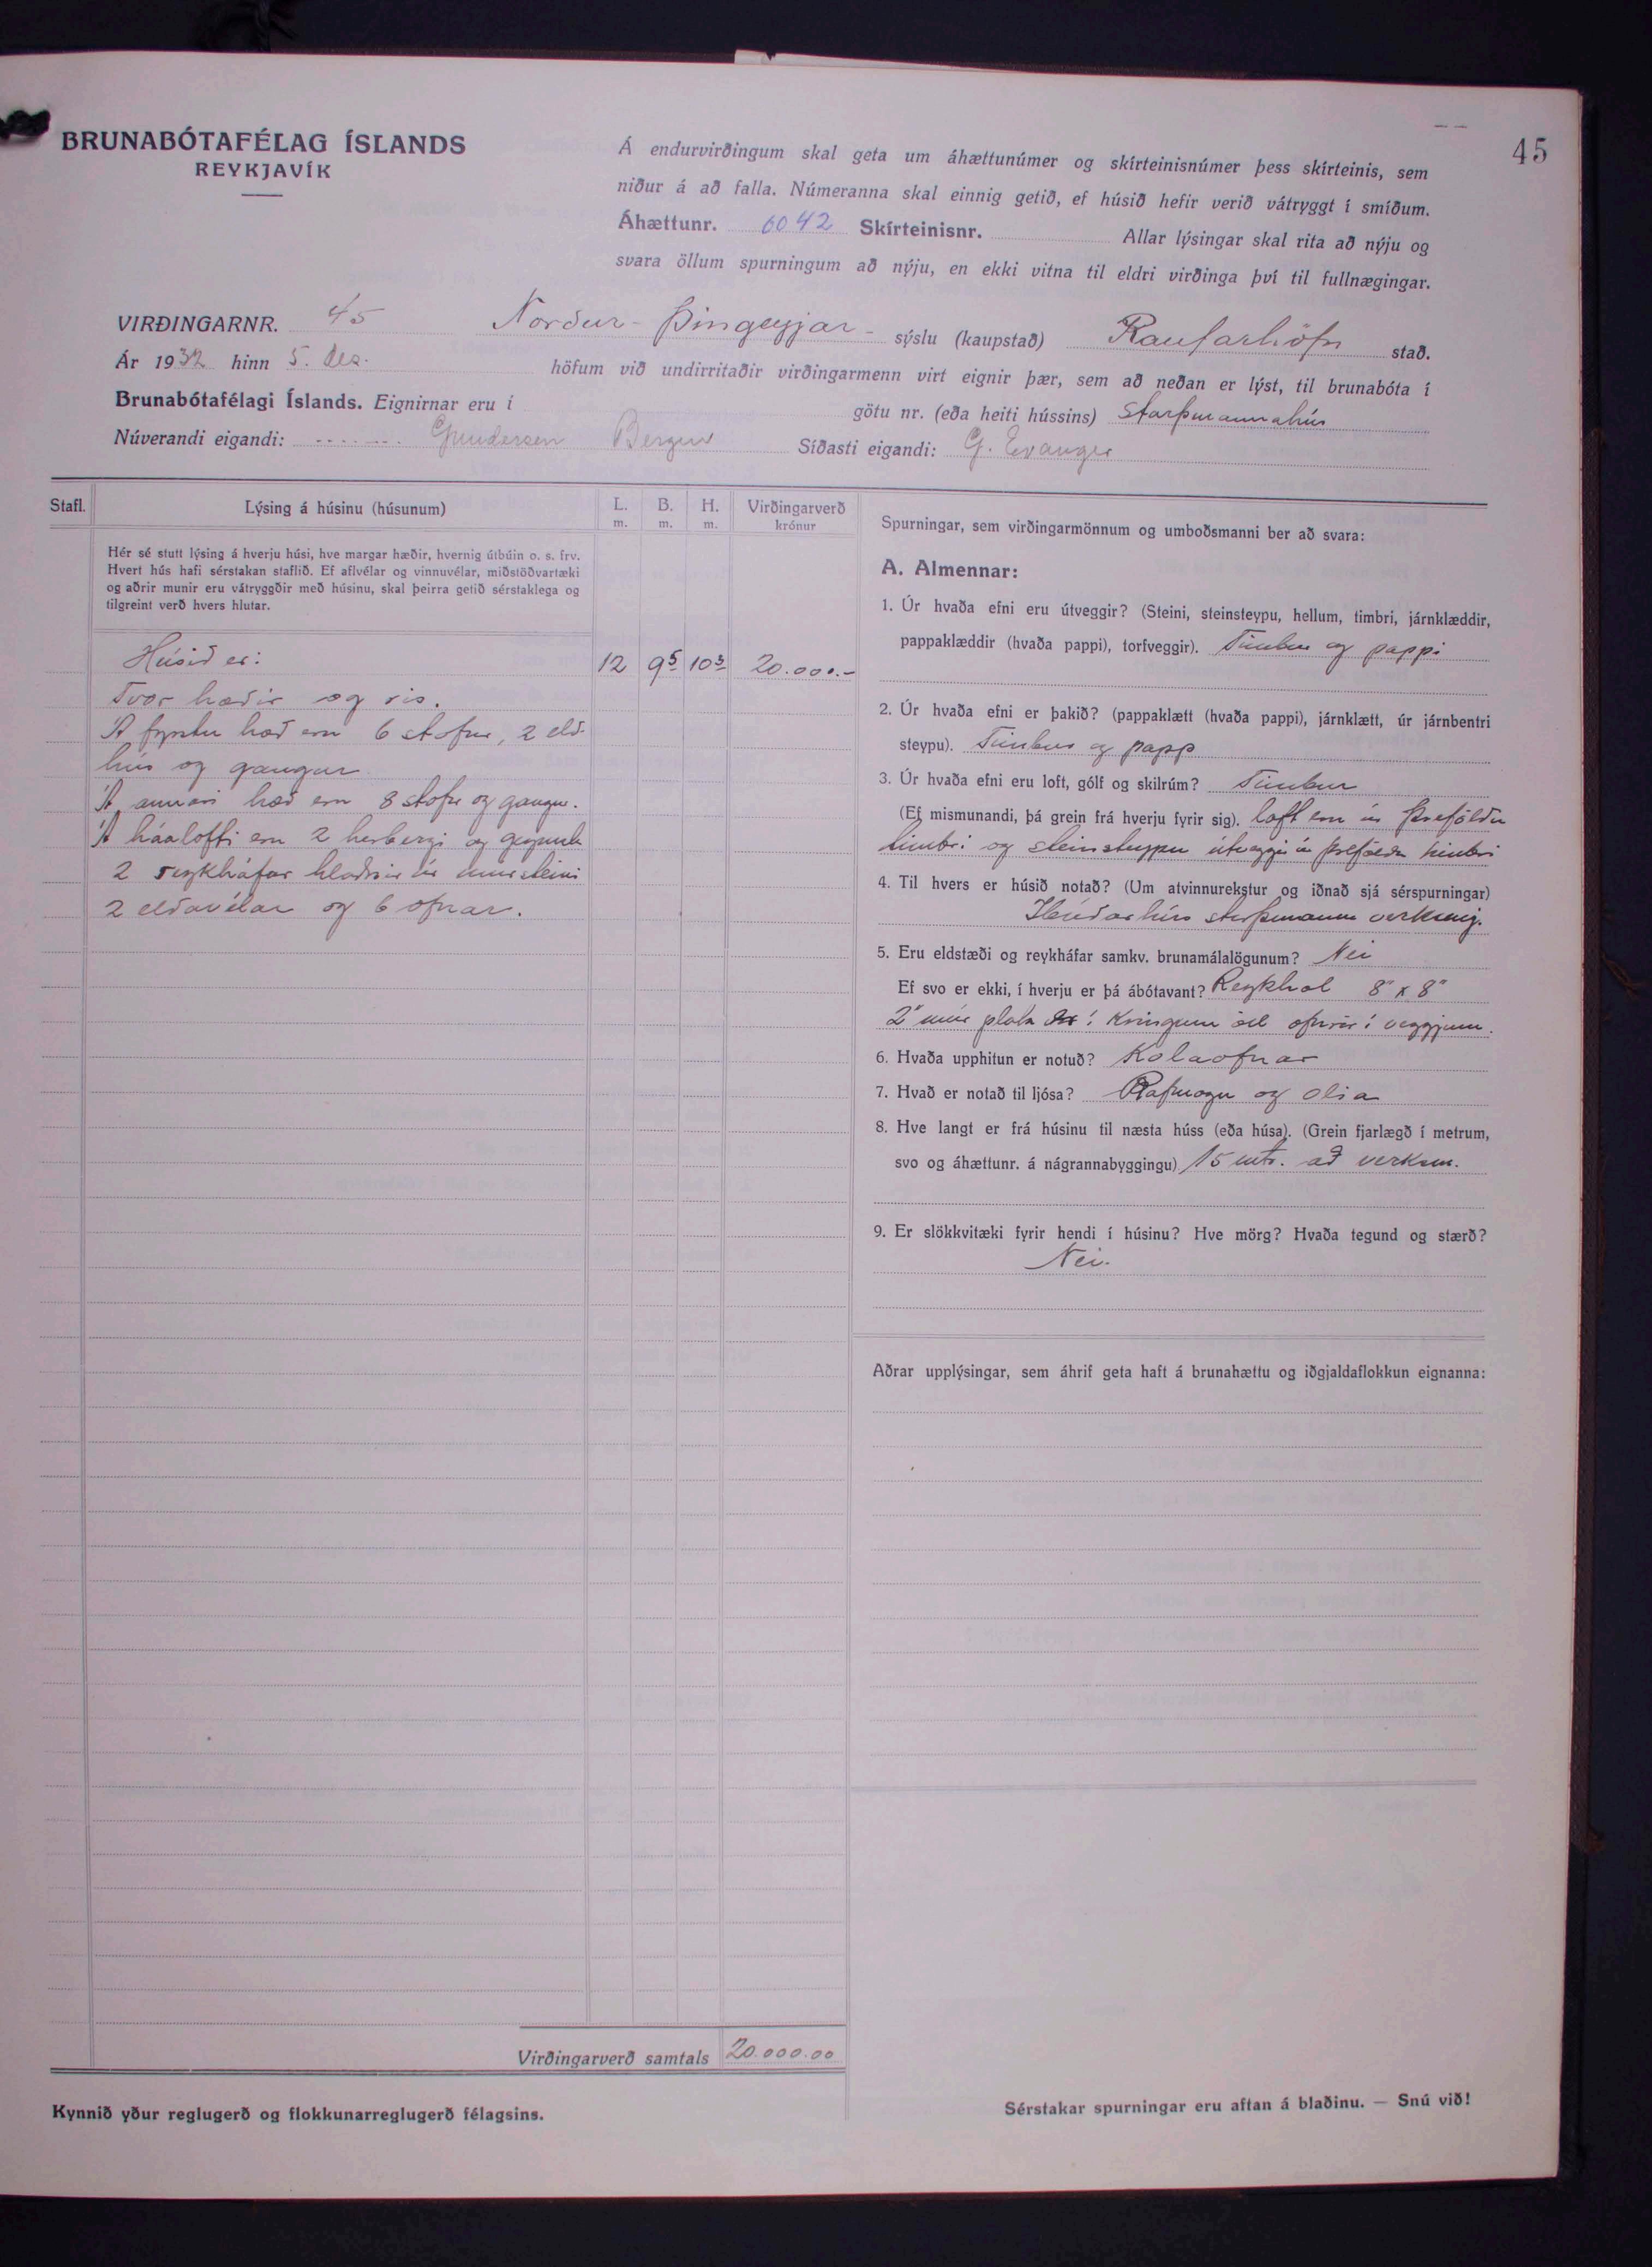 45
BRUNABÓTAFÉLAG ÍSLANDS
REYKJAVÍK
Á endurvirðingum skal geta um áhættunúmer og skírteinisnúmer þess skírteinis, sem
niður á að falla. Númeranna skal einnig getið, ef húsið hefir verið vátryggt í smíðum.
Áhættunr. 6042 Skírteinisnr. Allar lýsingar skal rita að nýju og
svara öllum spurningum að nýju, en ekki vitna til eldri virðinga því til fullnægingar.
VIRÐINGARNR. 45 Norður-Þingeyjar- sýslu (kaupstað) Raufarhöfn stað.
Ár 1932 hinn 5. des. höfum við undirritaðir virðingarmenn virt eignir þær, sem að neðan er lýst, til brunabóta í
Brunabótafélagi Íslands. Eignirnar eru í götu nr. (eða heiti hússins) Starfsmannahús
Núverandi eigandi: Gundersen Bergen Síðasti eigandi: G. Evanger
Stafl. Lýsing á húsinu (húsunum) L. m. B. m. H. m. Virðingarverð krónur
Hér sé stutt lýsing á hverju húsi, hve margar hæðir, hvernig útbúin o. s. frv.
Hvert hús hafi sérstakan staflið. Ef aflvélar og vinnuvélar, miðstöðvartæki
og aðrir munir eru vátryggðir með húsinu, skal þeirra getið sérstaklega og
tilgreint verð hvers hlutar.
Húsið er: 12 9⁵ 10³ 20.000.-
Tvær hæðir og ris.
Á fyrstu hæð eru 6 stofur, 2 eld-
hús og gangur
Á annari hæð eru 8 stofur og gangur.
Á háalofti eru 2 herbergi og geymsla
2 reykháfar hlaðnir úr múrsteini
2 eldavélar og 6 ofnar.
Virðingarverð samtals 20.000.00
Kynnið yður reglugerð og flokkunarreglugerð félagsins.
Spurningar, sem virðingarmönnum og umboðsmanni ber að svara:
A. Almennar:
1. Úr hvaða efni eru útveggir? (Steini, steinsteypu, hellum, timbri, járnklæddir,
pappaklæddir (hvaða pappi), torfveggir). Timbur og pappi
2. Úr hvaða efni er þakið? (pappaklætt (hvaða pappi), járnklætt, úr járnbentri
steypu). Timbur og papp
3. Úr hvaða efni eru loft, gólf og skilrúm? Timbur
(Ef mismunandi, þá grein frá hverju fyrir sig). loft eru úr þreföldu
timbri og steinsteypu útveggir úr þreföldu timbri
4. Til hvers er húsið notað? (Um atvinnurekstur og iðnað sjá sérspurningar)
Íbúðarhús starfsmanna verksmj.
5. Eru eldstæði og reykháfar samkv. brunamálalögunum? Nei
Ef svo er ekki, í hverju er þá ábótavant? Reykhol 8" x 8"
2" múr plata í kringum öll ofnrör í veggjum.
6. Hvaða upphitun er notuð? Kolaofnar
7. Hvað er notað til ljósa? Rafmagn og olia
8. Hve langt er frá húsinu til næsta húss (eða húsa). (Grein fjarlægð í metrum,
svo og áhættunr. á nágrannabyggingu) 15 mtr. að verksm.
9. Er slökkvitæki fyrir hendi í húsinu? Hve mörg? Hvaða tegund og stærð?
Nei.
Aðrar upplýsingar, sem áhrif geta haft á brunahættu og iðgjaldaflokkun eignanna:
Sérstakar spurningar eru aftan á blaðinu. — Snú við!